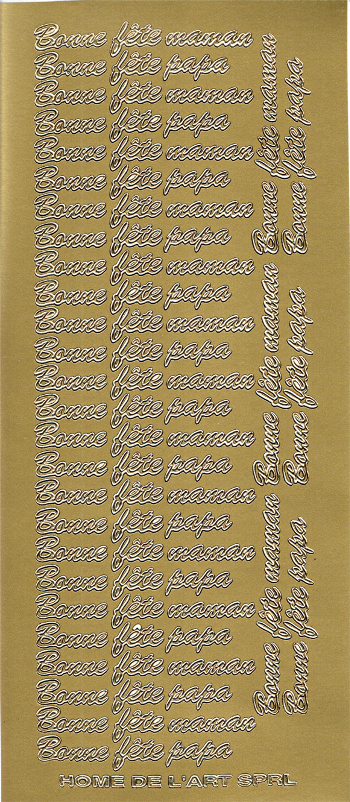 Bonne fête maman
Bonne fête papa
Bonne fête maman
Bonne fête papa
Bonne fête maman
Bonne fête papa
Bonne fête maman
Bonne fête papa
Bonne fête maman
Bonne fête papa
Bonne fête maman
Bonne fête papa
Bonne fête maman
Bonne fête papa
Bonne fête maman
Bonne fête papa
Bonne fête maman
Bonne fête papa
Bonne fête maman
Bonne fête papa
Bonne fête maman
Bonne fête papa
Bonne fête maman
Bonne fête papa
Bonne fête maman
Bonne fête papa
Bonne fête maman
Bonne fête papa
Bonne fête maman
Bonne fête papa
Bonne fête maman
Bonne fête papa
HOME DE L'ART SPRL